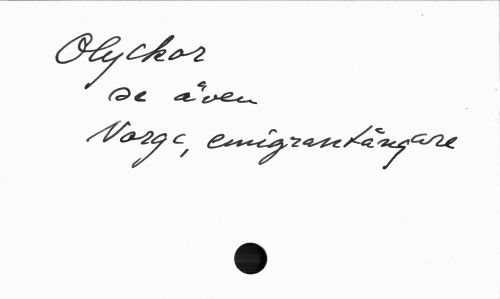 Olyckor
se även
Norge, emigrantångare